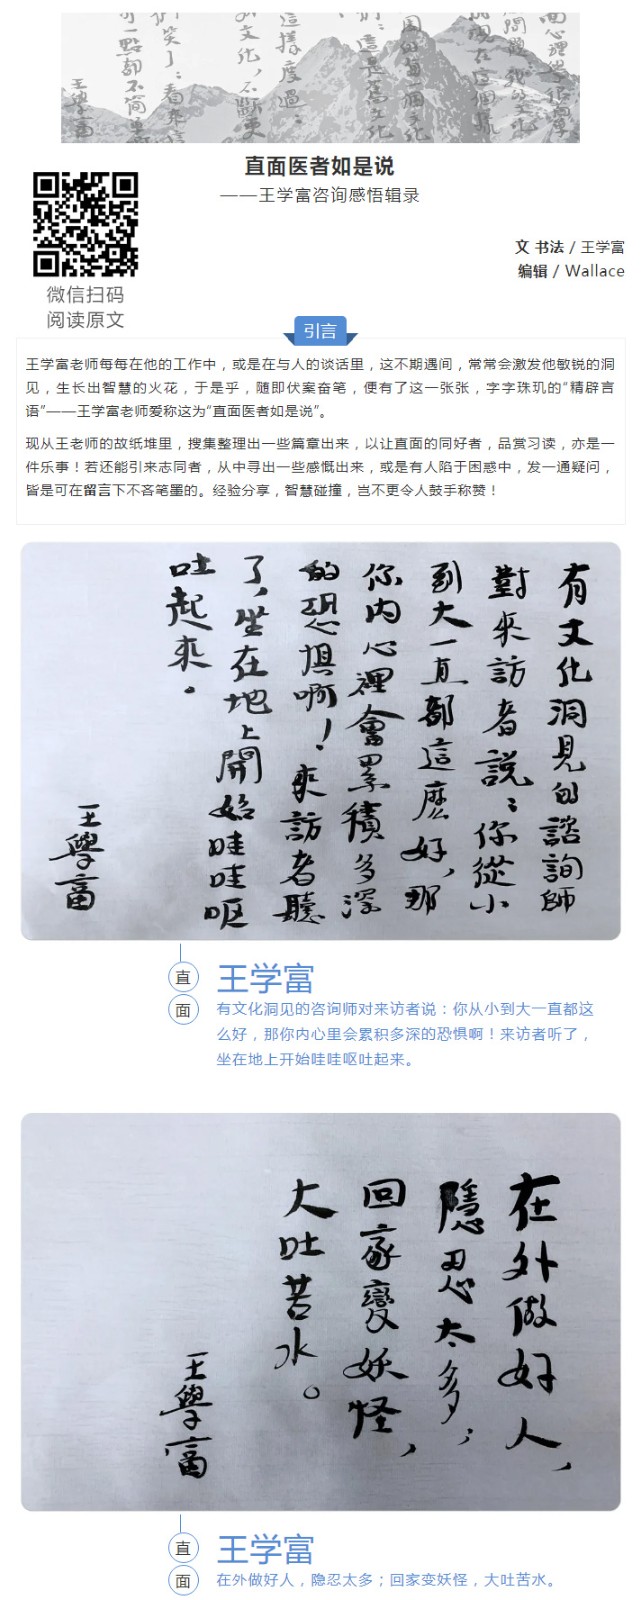 直面医者如是说
——王学富咨询感悟辑录
微信扫码
阅读原文
文 书法 / 王学富
编辑 / Wallace
引言
王学富老师每每在他的工作中，或是在与人的谈话里，这不期遇间，常常会激发他敏锐的洞
见，生长出智慧的火花，于是乎，随即伏案奋笔，便有了这一张张，字字珠玑的“精辟言
语”——王学富老师爱称这为“直面医者如是说”。
现从王老师的故纸堆里，搜集整理出一些篇章出来，以让直面的同好者，品赏习读，亦是一
件乐事！若还能引来志同者，从中寻出一些感慨出来，或是有人陷于困惑中，发一通疑问，
皆是可在留言下不吝笔墨的。经验分享，智慧碰撞，岂不更令人鼓手称赞！
有文化洞見的諮詢師
對來訪者說：你從小
到大一直都這麼好，那
你內心裡會累積多深
的恐惧啊！來訪者聽
了，坐在地上開始哇哇呕
吐起來。
王學富
直面
王学富
有文化洞见的咨询师对来访者说：你从小到大一直都这
么好，那你内心里会累积多深的恐惧啊！来访者听了，
坐在地上开始哇哇呕吐起来。
在外做好人，
隱忍太多；
回家變妖怪，
大吐苦水。
王學富
直面
王学富
在外做好人，隐忍太多；回家变妖怪，大吐苦水。